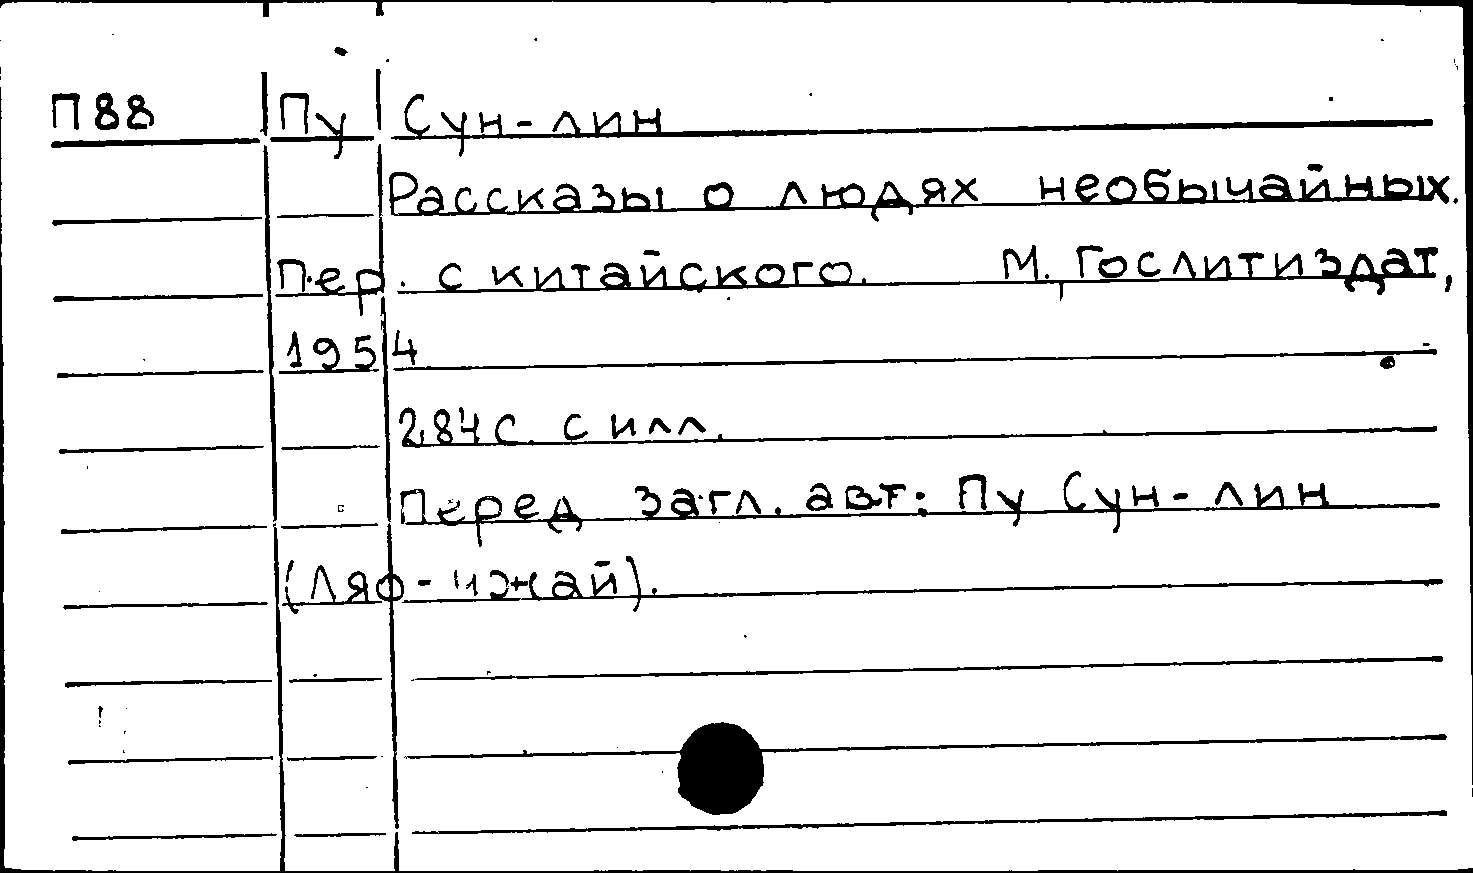 П88 Пу Сун-лин
Рассказы о людях необычайных.
Пер. с китайского. М., Гослитиздат,
1954
284 с. с илл.
Перед загл. авт: Пу Сун-лин
(Ляо-чжай).